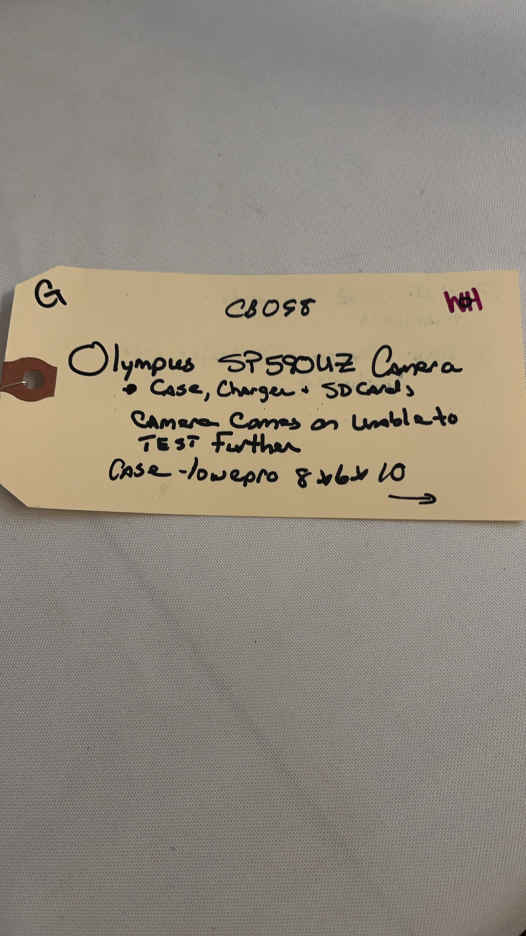 G
CB098
WH
Olympus SP590UZ Camera
• Case, Charger + SD Cards
Camera Comes on Unable to
TEST Further
Case - lowepro 8x6x10
→